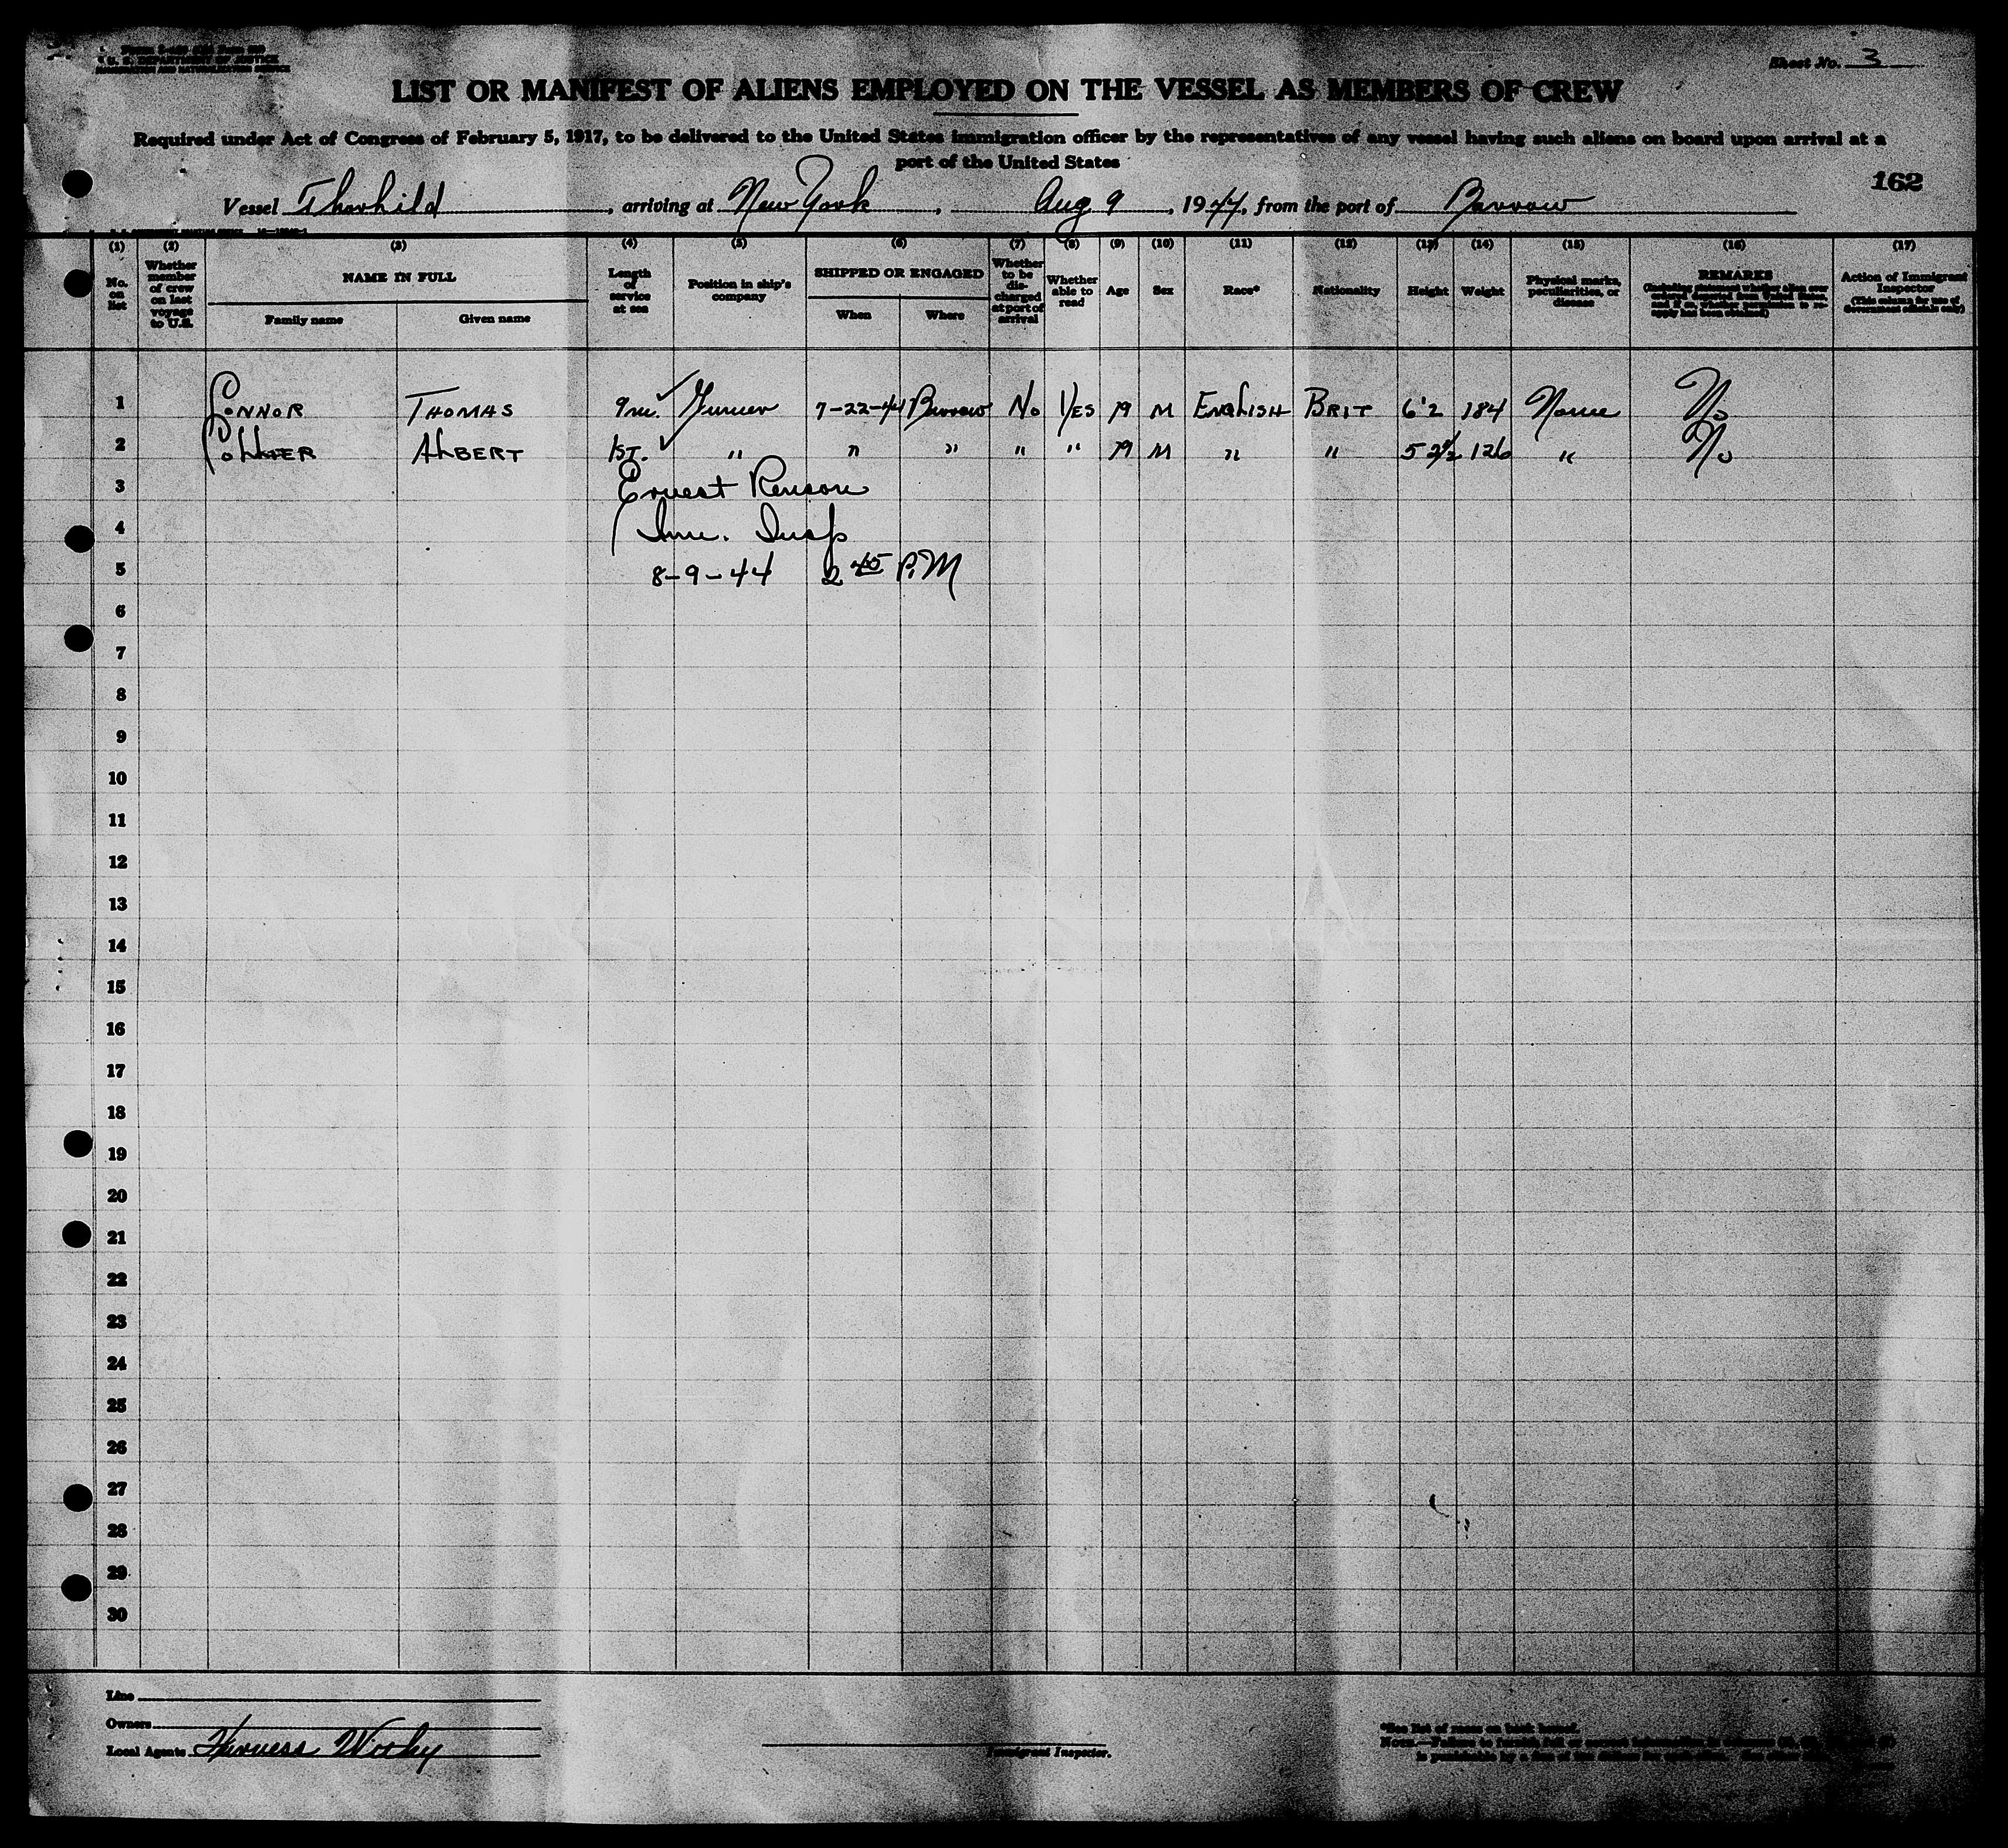 U. S. DEPARTMENT OF JUSTICE
IMMIGRATION AND NATURALIZATION SERVICE
Sheet No. 3
LIST OR MANIFEST OF ALIENS EMPLOYED ON THE VESSEL AS MEMBERS OF CREW
Required under Act of Congress of February 5, 1917, to be delivered to the United States immigration officer by the representatives of any vessel having such aliens on board upon arrival at a
port of the United States
162
Vessel Thorhild, arriving at New York, Aug 9, 1944, from the port of Barrow
(1) (2) (3) (4) (5) (6) (7) (8) (9) (10) (11) (12) (13) (14) (15) (16) (17)
No. on list
Whether member of crew on last voyage to U.S.
NAME IN FULL
Family name
Given name
Length of service at sea
Position in ship's company
SHIPPED OR ENGAGED
When
Where
Whether to be discharged at port of arrival
Whether able to read
Age
Sex
Race*
Nationality
Height
Weight
Physical marks, peculiarities, or disease
REMARKS
(Including statement whether alien ever ordered deported from United States, and if so whether permission to reapply has been obtained)
Action of Immigrant Inspector
(This column for use of Government officials only)
1 CONNOR THOMAS 9m. Gunner 7-22-44 Barrow No YES 19 M ENGLISH BRIT 6'2 184 None No
2 COLLIER ALBERT 1ST. " " " " " 19 M " " 5 2½ 126 " No
3 Ernest Renson
4 Imm. Insp
5 8-9-44 2 45 P.M
6
7
8
9
10
11
12
13
14
15
16
17
18
19
20
21
22
23
24
25
26
27
28
29
30
Line
Owners
Local Agents
Immigrant Inspector.
*See list of races on back hereof.